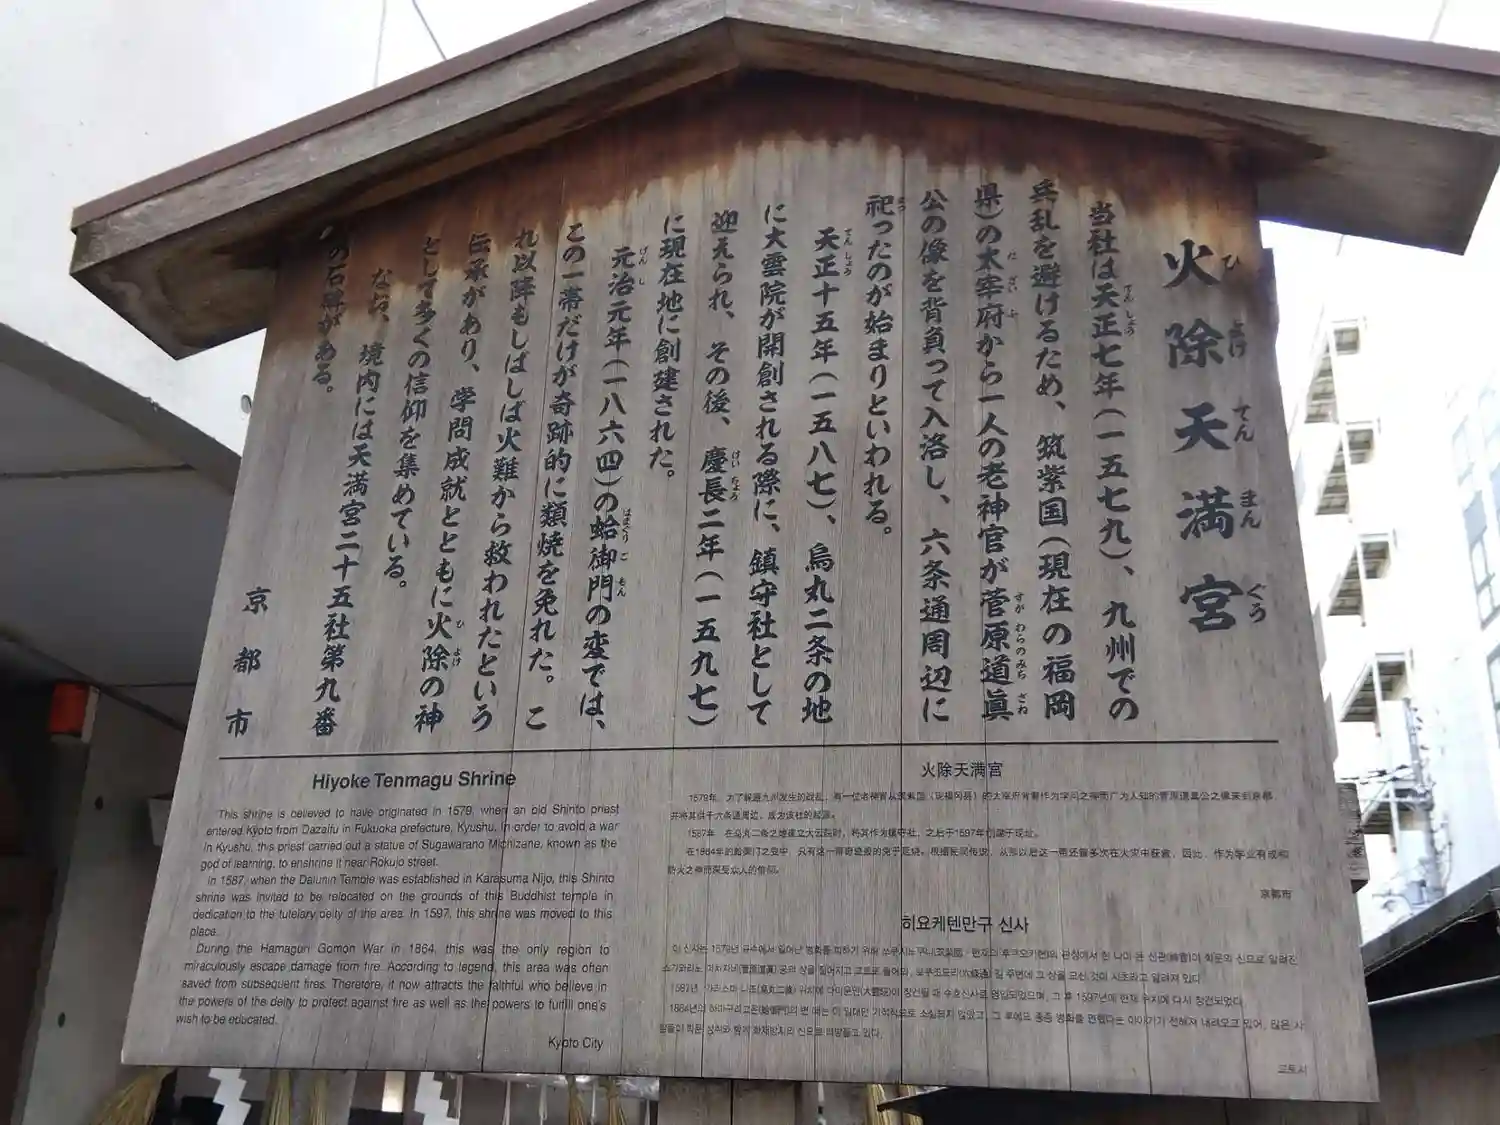 火除天満宮
当社は天正七年(一五七九)、九州での
兵乱を避けるため、筑紫国(現在の福岡
県)の太宰府から一人の老神官が菅原道真
公の像を背負って入洛し、六条通周辺に
祀ったのが始まりといわれる。
天正十五年(一五八七)、烏丸二条の地
に大雲院が開創される際に、鎮守社として
迎えられ、その後、慶長二年(一五九七)
に現在地に創建された。
元治元年(一八六四)の蛤御門の変では、
この一帯だけが奇跡的に類焼を免れた。こ
れ以降もしばしば火難から救われたという
伝承があり、学問成就とともに火除の神
として多くの信仰を集めている。
なお、境内には天満宮二十五社第九番
の石碑がある。
京都市
Hiyoke Tenmagu Shrine
This shrine is believed to have originated in 1579, when an old Shinto priest
entered Kyoto from Dazaifu in Fukuoka prefecture, Kyushu. In order to avoid a war
in Kyushu, this priest carried out a statue of Sugawarano Michizane, known as the
god of learning, to enshrine it near Rokujo street.
In 1587, when the Daiunin Temple was established in Karasuma Nijo, this Shinto
shrine was invited to be relocated on the grounds of this Buddhist temple in
dedication to the tutelary deity of the area. In 1597, this shrine was moved to this
place.
During the Hamaguri Gomon War in 1864, this was the only region to
miraculously escape damage from fire. According to legend, this area was often
saved from subsequent fires. Therefore, it now attracts the faithful who believe in
the powers of the deity to protect against fire as well as the powers to fulfill one's
wish to be educated.
Kyoto City
火除天满宫
1579年，为了躲避九州发生的战乱，有一位老神官从筑紫国（现福冈县）的太宰府背着作为学问之神而广为人知的菅原道真公之像来到京都，
并将其供于六条通周边，成为该社的起源。
1587年，在乌丸二条之地建立大云院时，将其作为镇守社，之后于1597年创建于现址。
在1864年的蛤御门之变中，只有这一带奇迹般的免于延烧。根据民间传说，从那以后这一带还曾多次在火灾中获救，因此，作为学业有成和
防火之神而深受众人的信仰。
京都市
히요케텐만구 신사
교토시